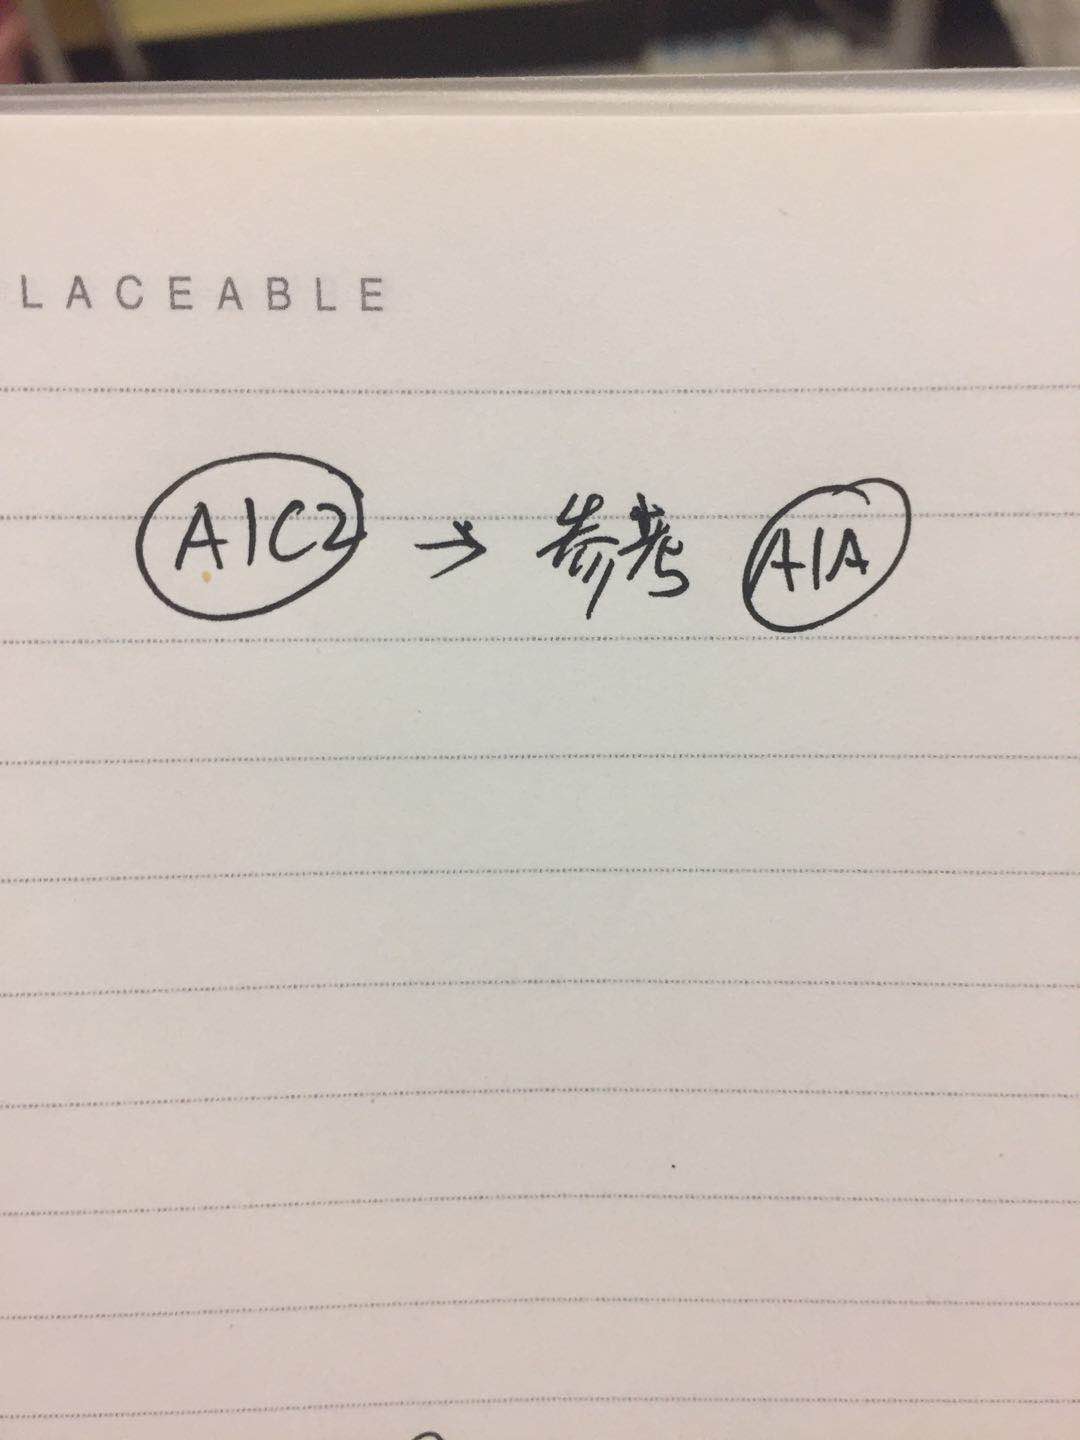 LACEABLE
A1C2 → 参考 A1A